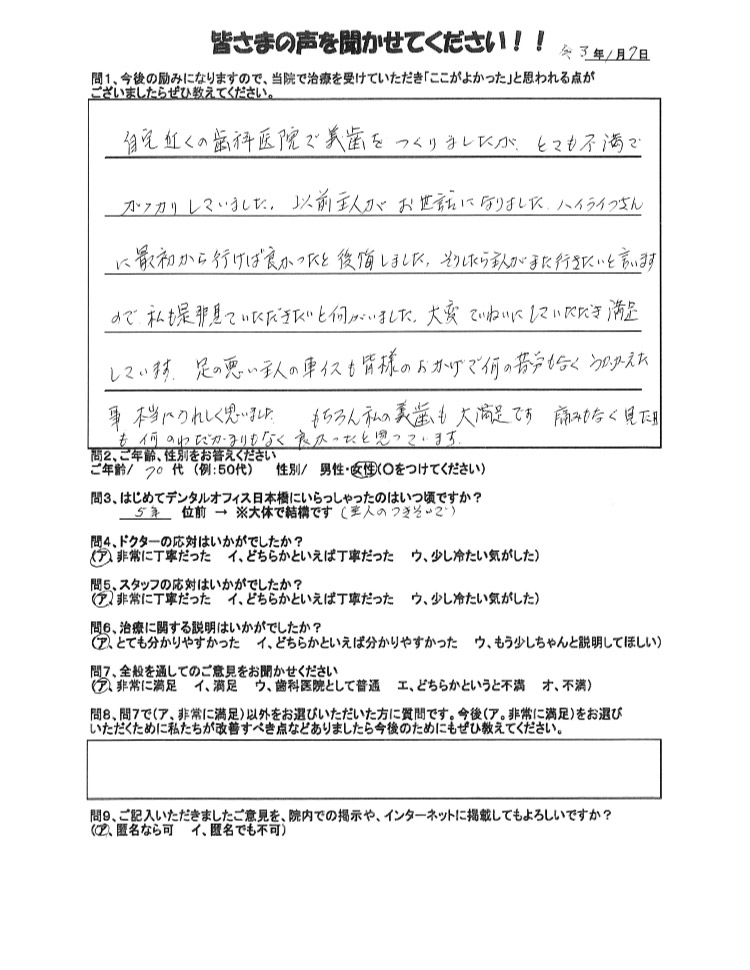 皆さまの声を聞かせてください！！
令3年1月7日
問1、今後の励みになりますので、当院で治療を受けていただき「ここがよかった」と思われる点が
ございましたらぜひ教えてください。
自宅近くの歯科医院で義歯をつくりましたが、とても不満で
ガッカリしていました。以前主人がお世話になりました、ハイライフさん
に最初から行けば良かったと後悔しました。そしたら主人がまた行きたいと言います
ので、私も是非見ていただきたいと伺がいました。大変ていねいにしていただき満足
しています。足の悪い主人の車イスも皆様のおかげで何の苦労もなく
事本当にうれしく思いました もちろん私の義歯も大満足です 痛みもなく見た目
も何のわだかまりもなく良かったと思っています。
問2、ご年齢、性別をお答えください
ご年齢/ 70 代 (例:50代) 性別/ 男性・女性(〇をつけてください)
問3、はじめてデンタルオフィス日本橋にいらっしゃったのはいつ頃ですか？
5年 位前 → ※大体で結構です (主人のつきそいで)
問4、ドクターの応対はいかがでしたか？
(ア、非常に丁寧だった イ、どちらかといえば丁寧だった ウ、少し冷たい気がした)
問5、スタッフの応対はいかがでしたか？
(ア、非常に丁寧だった イ、どちらかといえば丁寧だった ウ、少し冷たい気がした)
問6、治療に関する説明はいかがでしたか？
(ア、とても分かりやすかった イ、どちらかといえば分かりやすかった ウ、もう少しちゃんと説明してほしい)
問7、全般を通してのご意見をお聞かせください
(ア、非常に満足 イ、満足 ウ、歯科医院として普通 エ、どちらかというと不満 オ、不満)
問8、問7で(ア、非常に満足)以外をお選びいただいた方に質問です。今後(ア。非常に満足)をお選び
いただくために私たちが改善すべき点などありましたら今後のためにもぜひ教えてください。
問9、ご記入いただきましたご意見を、院内での掲示や、インターネットに掲載してもよろしいですか？
(ア、匿名なら可 イ、匿名でも不可)